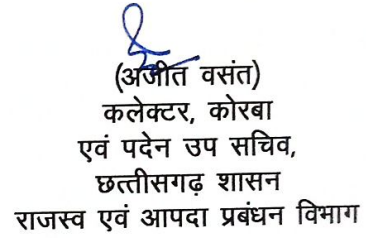 (अजीत वसंत)
कलेक्टर, कोरबा
एवं पदेन उप सचिव,
छत्तीसगढ़ शासन
राजस्व एवं आपदा प्रबंधन विभाग